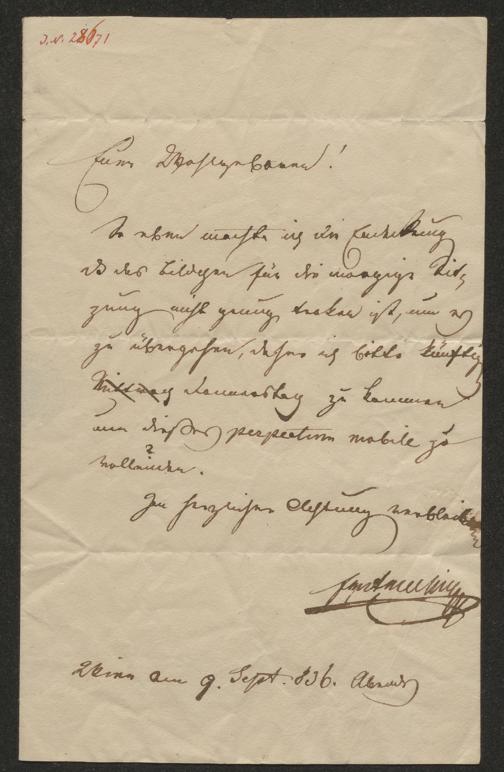 J.N. 28671
Euer Wohlgeboren!
So eben machte ich die Entdeckung
daß das Bildchen für die morgige Sit-
zung nicht genug trocken ist, um es
zu übergehen, daher ich bitte künftig
Mittwoch Donnerstag zu kommen
um dießes perpetum mobile zu
vollenden.
In herzlicher Achtung verbleibe
Wien am 9. Sept. 836. Abends